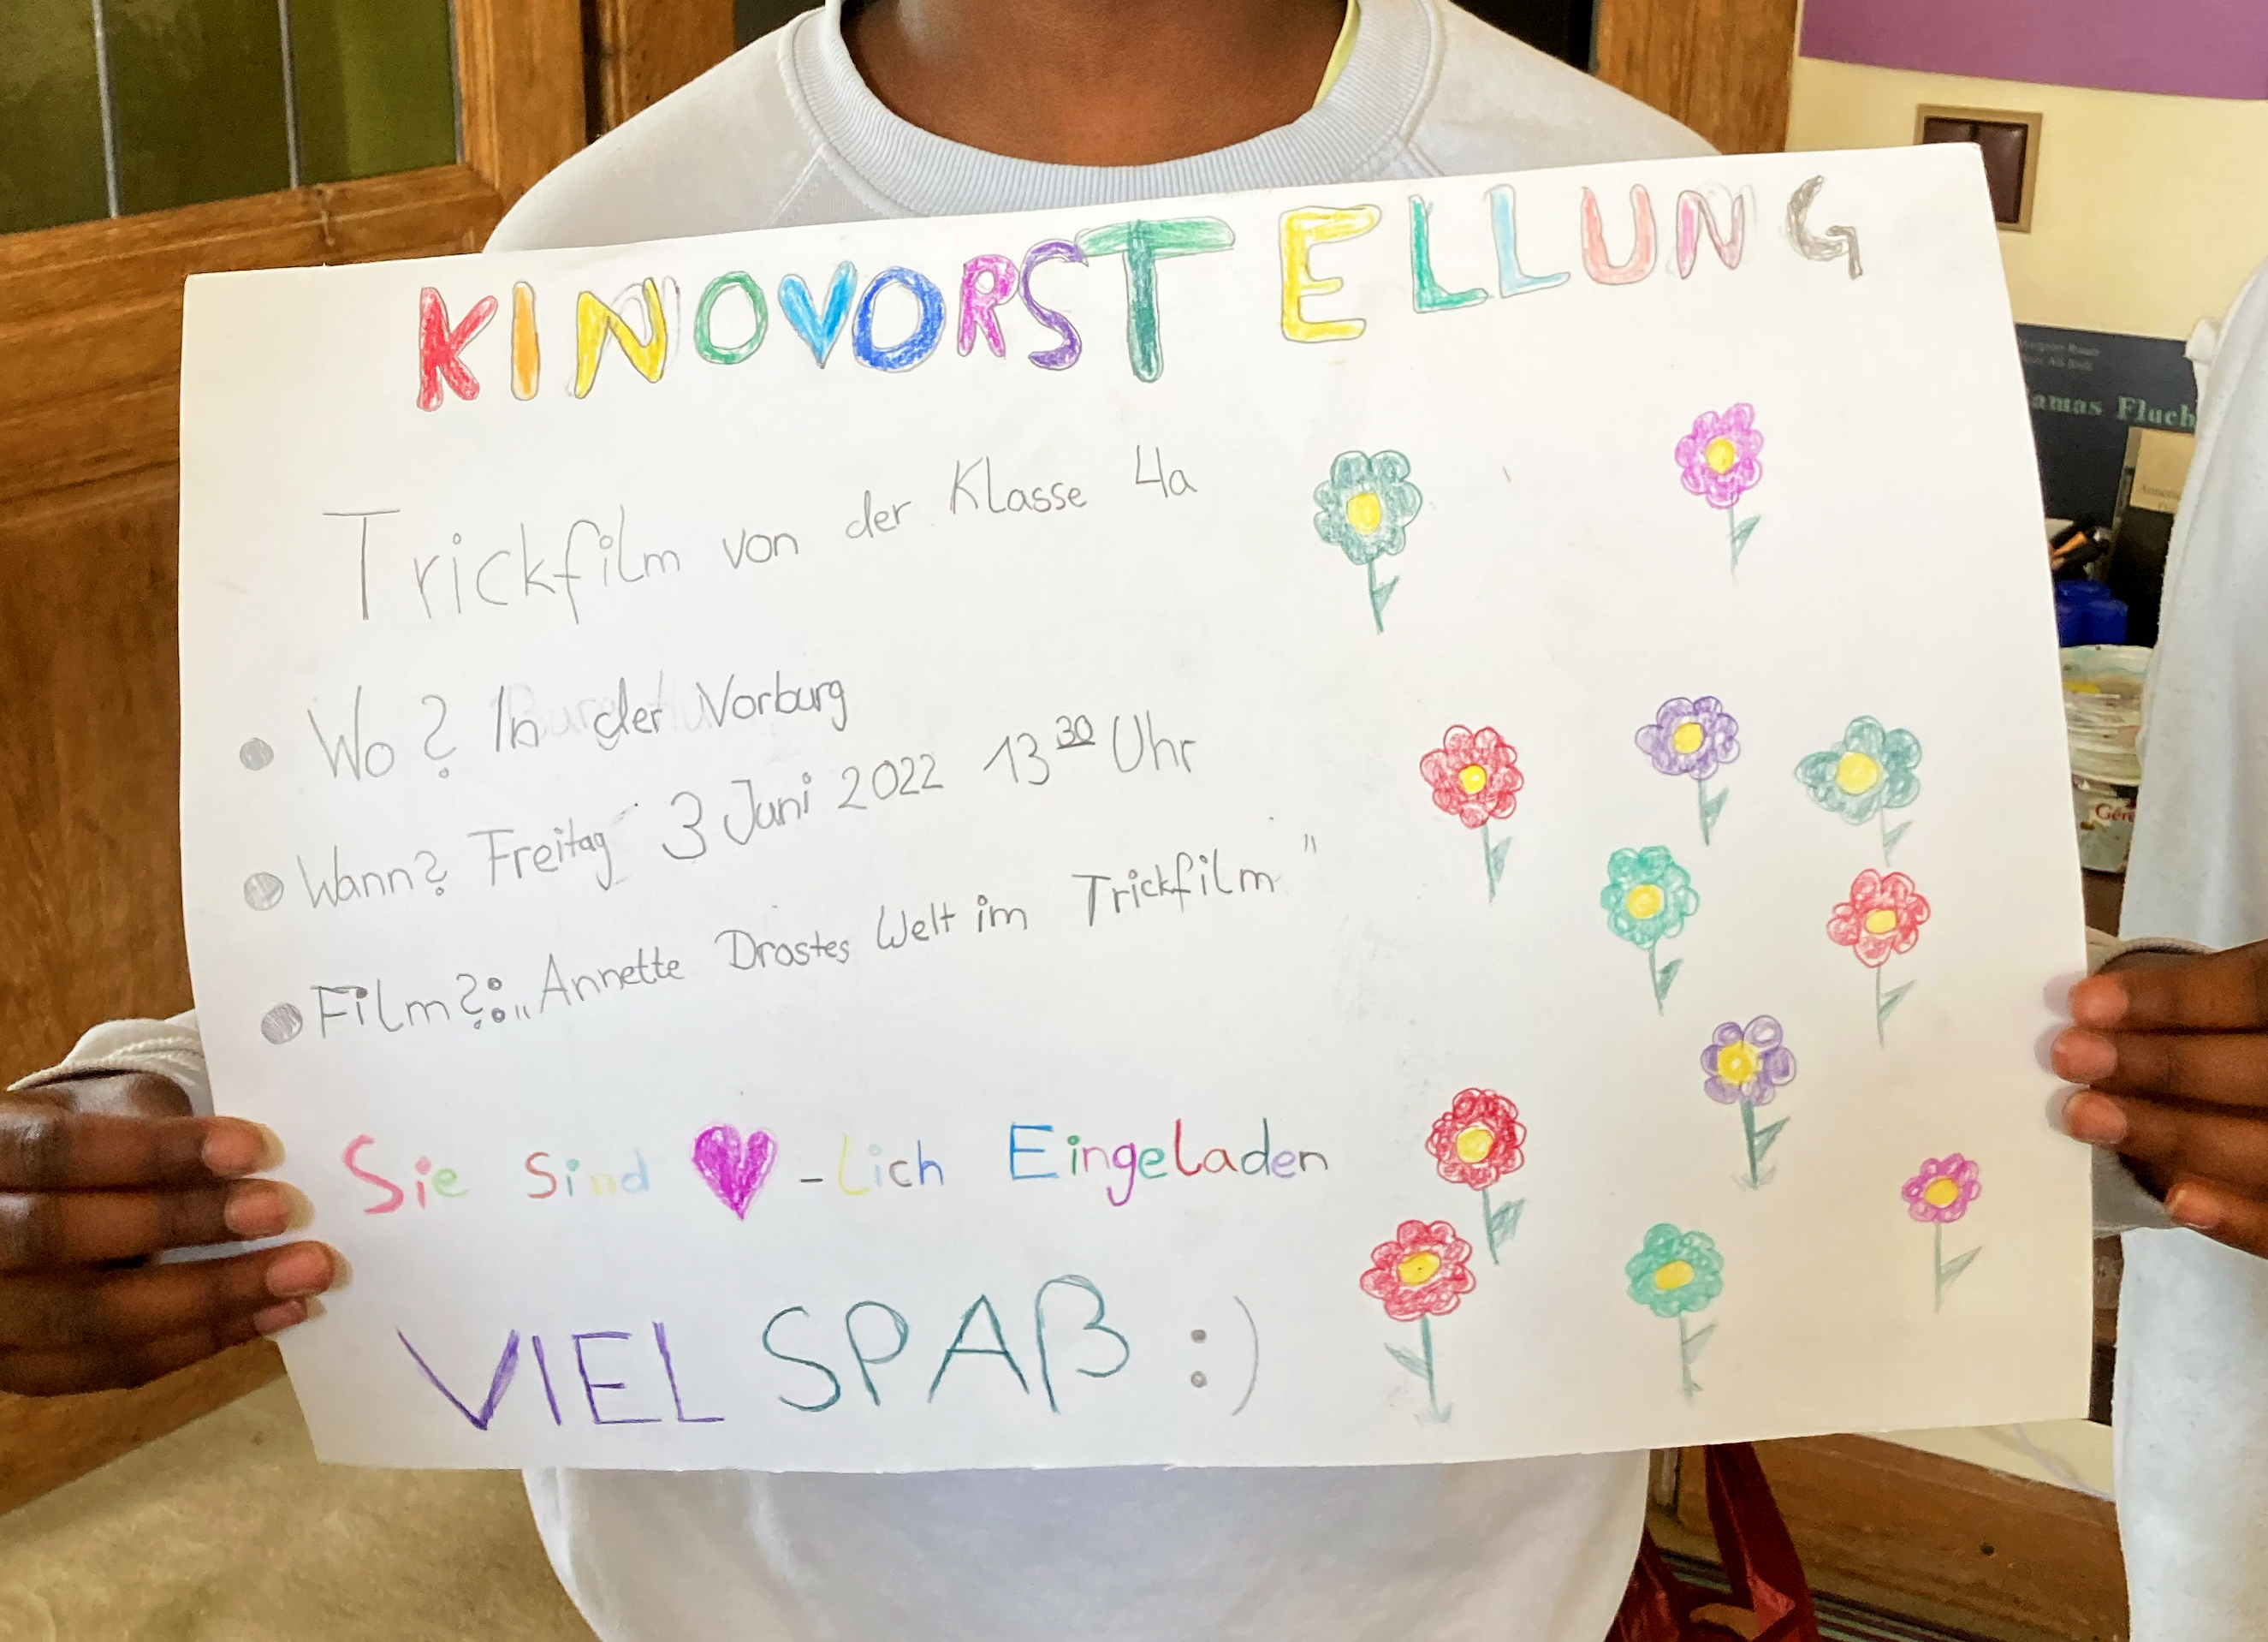 KINOVORSTELLUNG
Trickfilm von der Klasse 4a
Wo? In der Vorburg
Wann? Freitag 3 Juni 2022 13 30 Uhr
Film?: „Annette Drostes Welt im Trickfilm"
Sie Sind ♥-lich Eingeladen
VIEL SPAß :)
amas Fluch